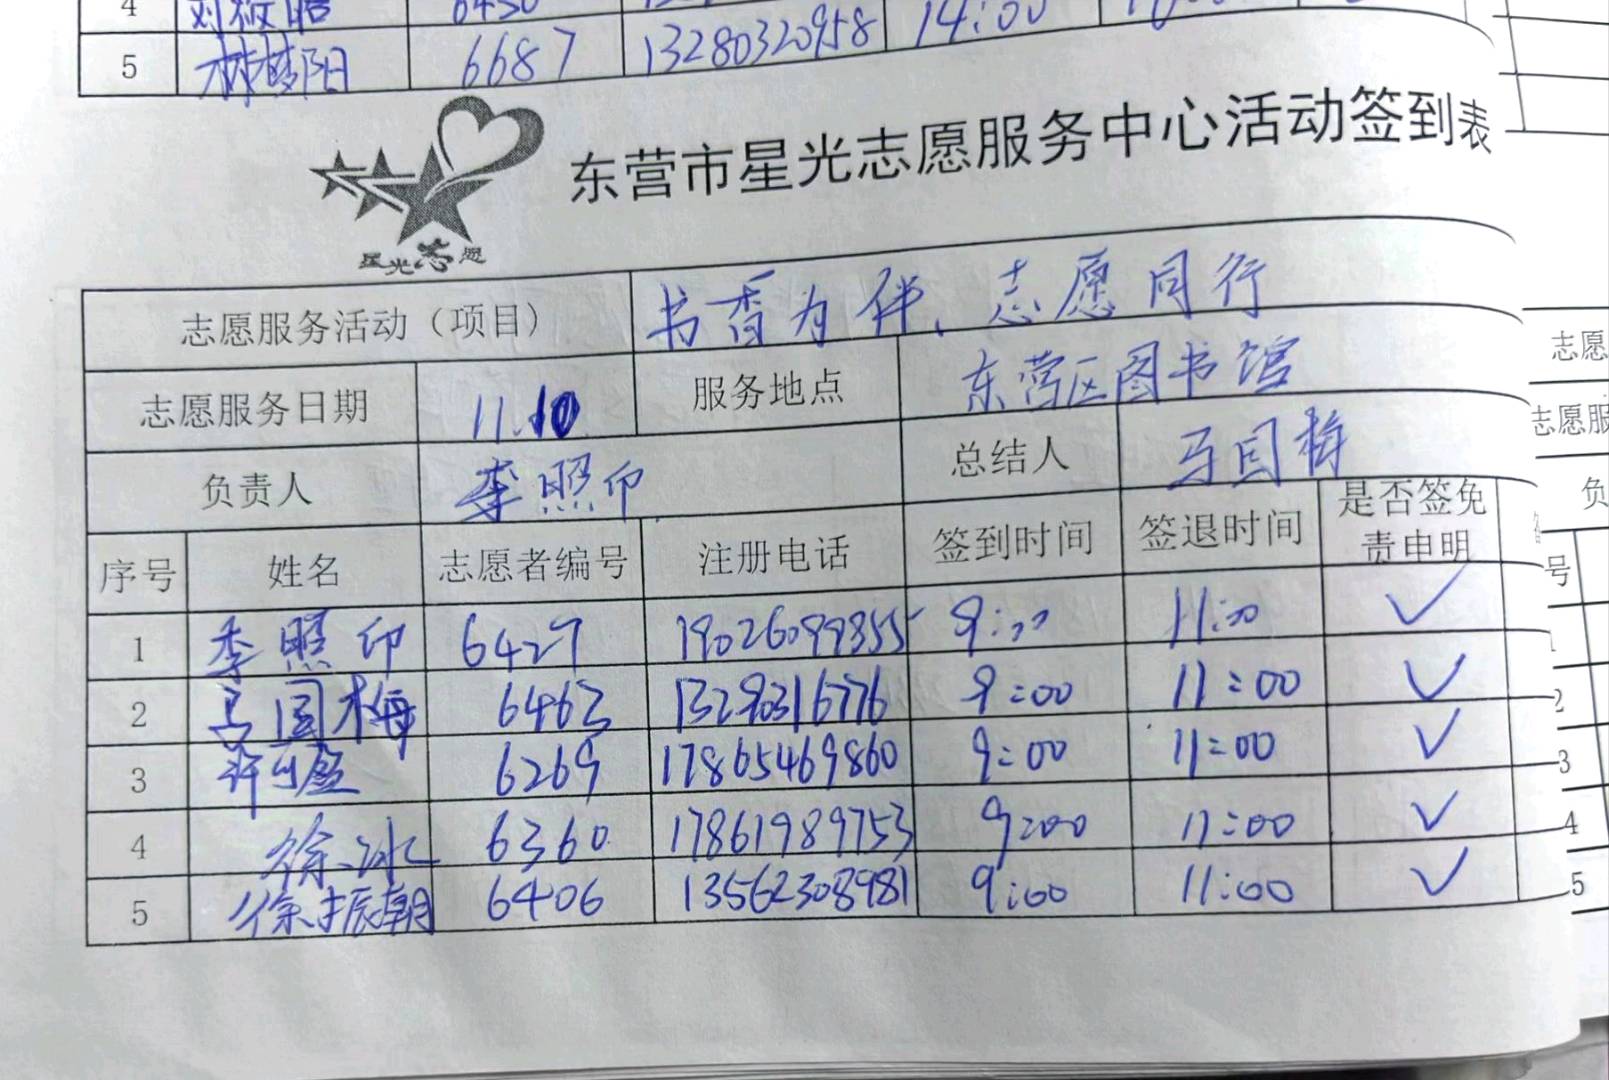 4 6430
5 林梦阳 6687 13280320958 14:00
东营市星光志愿服务中心活动签到表
星光志愿
志愿服务活动（项目） 书香为伴、志愿同行
志愿服务日期 11.10 服务地点 东营区图书馆
负责人 李照印 总结人 马国梅
序号 姓名 志愿者编号 注册电话 签到时间 签退时间 是否签免责申明
1 李照印 6427 19026099355 9:00 11:00 ✓
2 马国梅 6463 13290316776 9:00 11:00 ✓
3 6269 17865469860 9:00 11:00 ✓
4 徐冰 6360 17861989753 9:00 11:00 ✓
5 徐振朝 6406 13562308981 9:00 11:00 ✓
志愿
志愿服
负
号
1
2
3
4
5